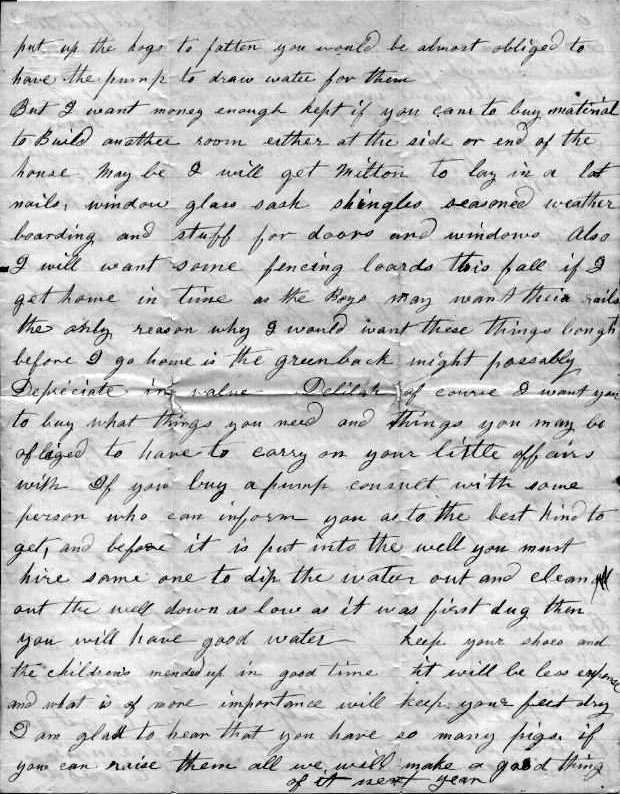 put up the hogs to fatten you would be almost obliged to
have the pump to draw water for them
But I want money enough kept if you can to buy material
to Build another room either at the side or end of the
house May be I will get Milton to lay in a lot
nails, window glass sash shingles seasoned weather
boarding and stuff for doors and windows Also
I will want some fencing boards this fall if I
get home in time as the Boys may want their rails
the only reason why I would want these things bought
before I go home is the greenback might possably
Depreciate in value Delilah of course I want you
to buy what things you need and things you may be
obliged to have to carry on your little affairs
with If you buy a pump consult with some
person who can inform you as to the best kind to
get, and before it is put into the well you must
hire some one to dip the water out and clean
out the well down as low as it was first dug then
you will have good water keep your shoes and
the children's mended up in good time it will be less expense
and what is of more importance will keep your feet dry
I am glad to hear that you have so many pigs. if
you can raise them all we will make a good thing
of it next year